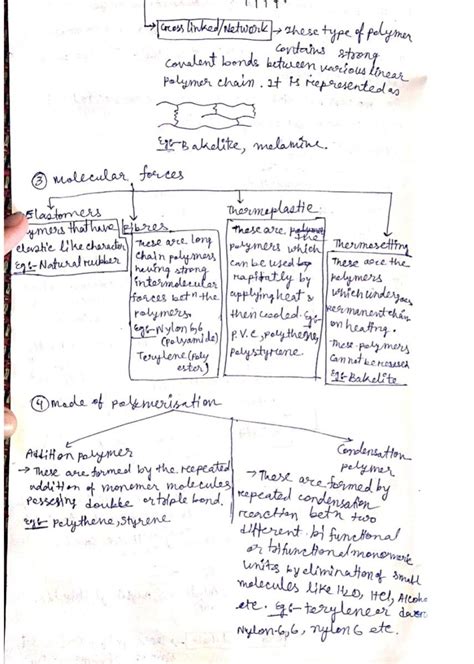 Cross linked/Network → These type of polymer
contains strong
covalent bonds between various linear
polymer chain. It is represented as
Eg:- Bakelite, melamine.
③ Molecular forces
Elastomers
ymers that have
elastic like character
Eg:- Natural rubber
Fibres
These are long
chain polymers
having strong
intermolecular
forces betn the
polymers.
Eg:- Nylon 6,6
(Polyamide)
Terylene (Poly
ester)
Thermoplastic
These are the
polymers which
can be used
by
applying heat &
then cooled. Eg:-
P.V.C, polythene,
polystyrene.
Thermosetting
These are the
polymers
which undergoes
permanent
on heating.
These polymers
cannot be
Eg:- Bakelite
④ Mode of polymerisation
Addition polymer
→ These are formed by the repeated
addition of monomer molecules
possesing double or triple bond.
Eg:- Polythene, Styrene
Condensation
polymer
→ These are formed by
repeated condensation
reaction betn two
different bi functional
or trifunctional monomeric
units by elimination of small
molecules like H2O, HCl, Alcoho
etc. Eg:- terylene or dacron
Nylon-6,6, nylon 6 etc.